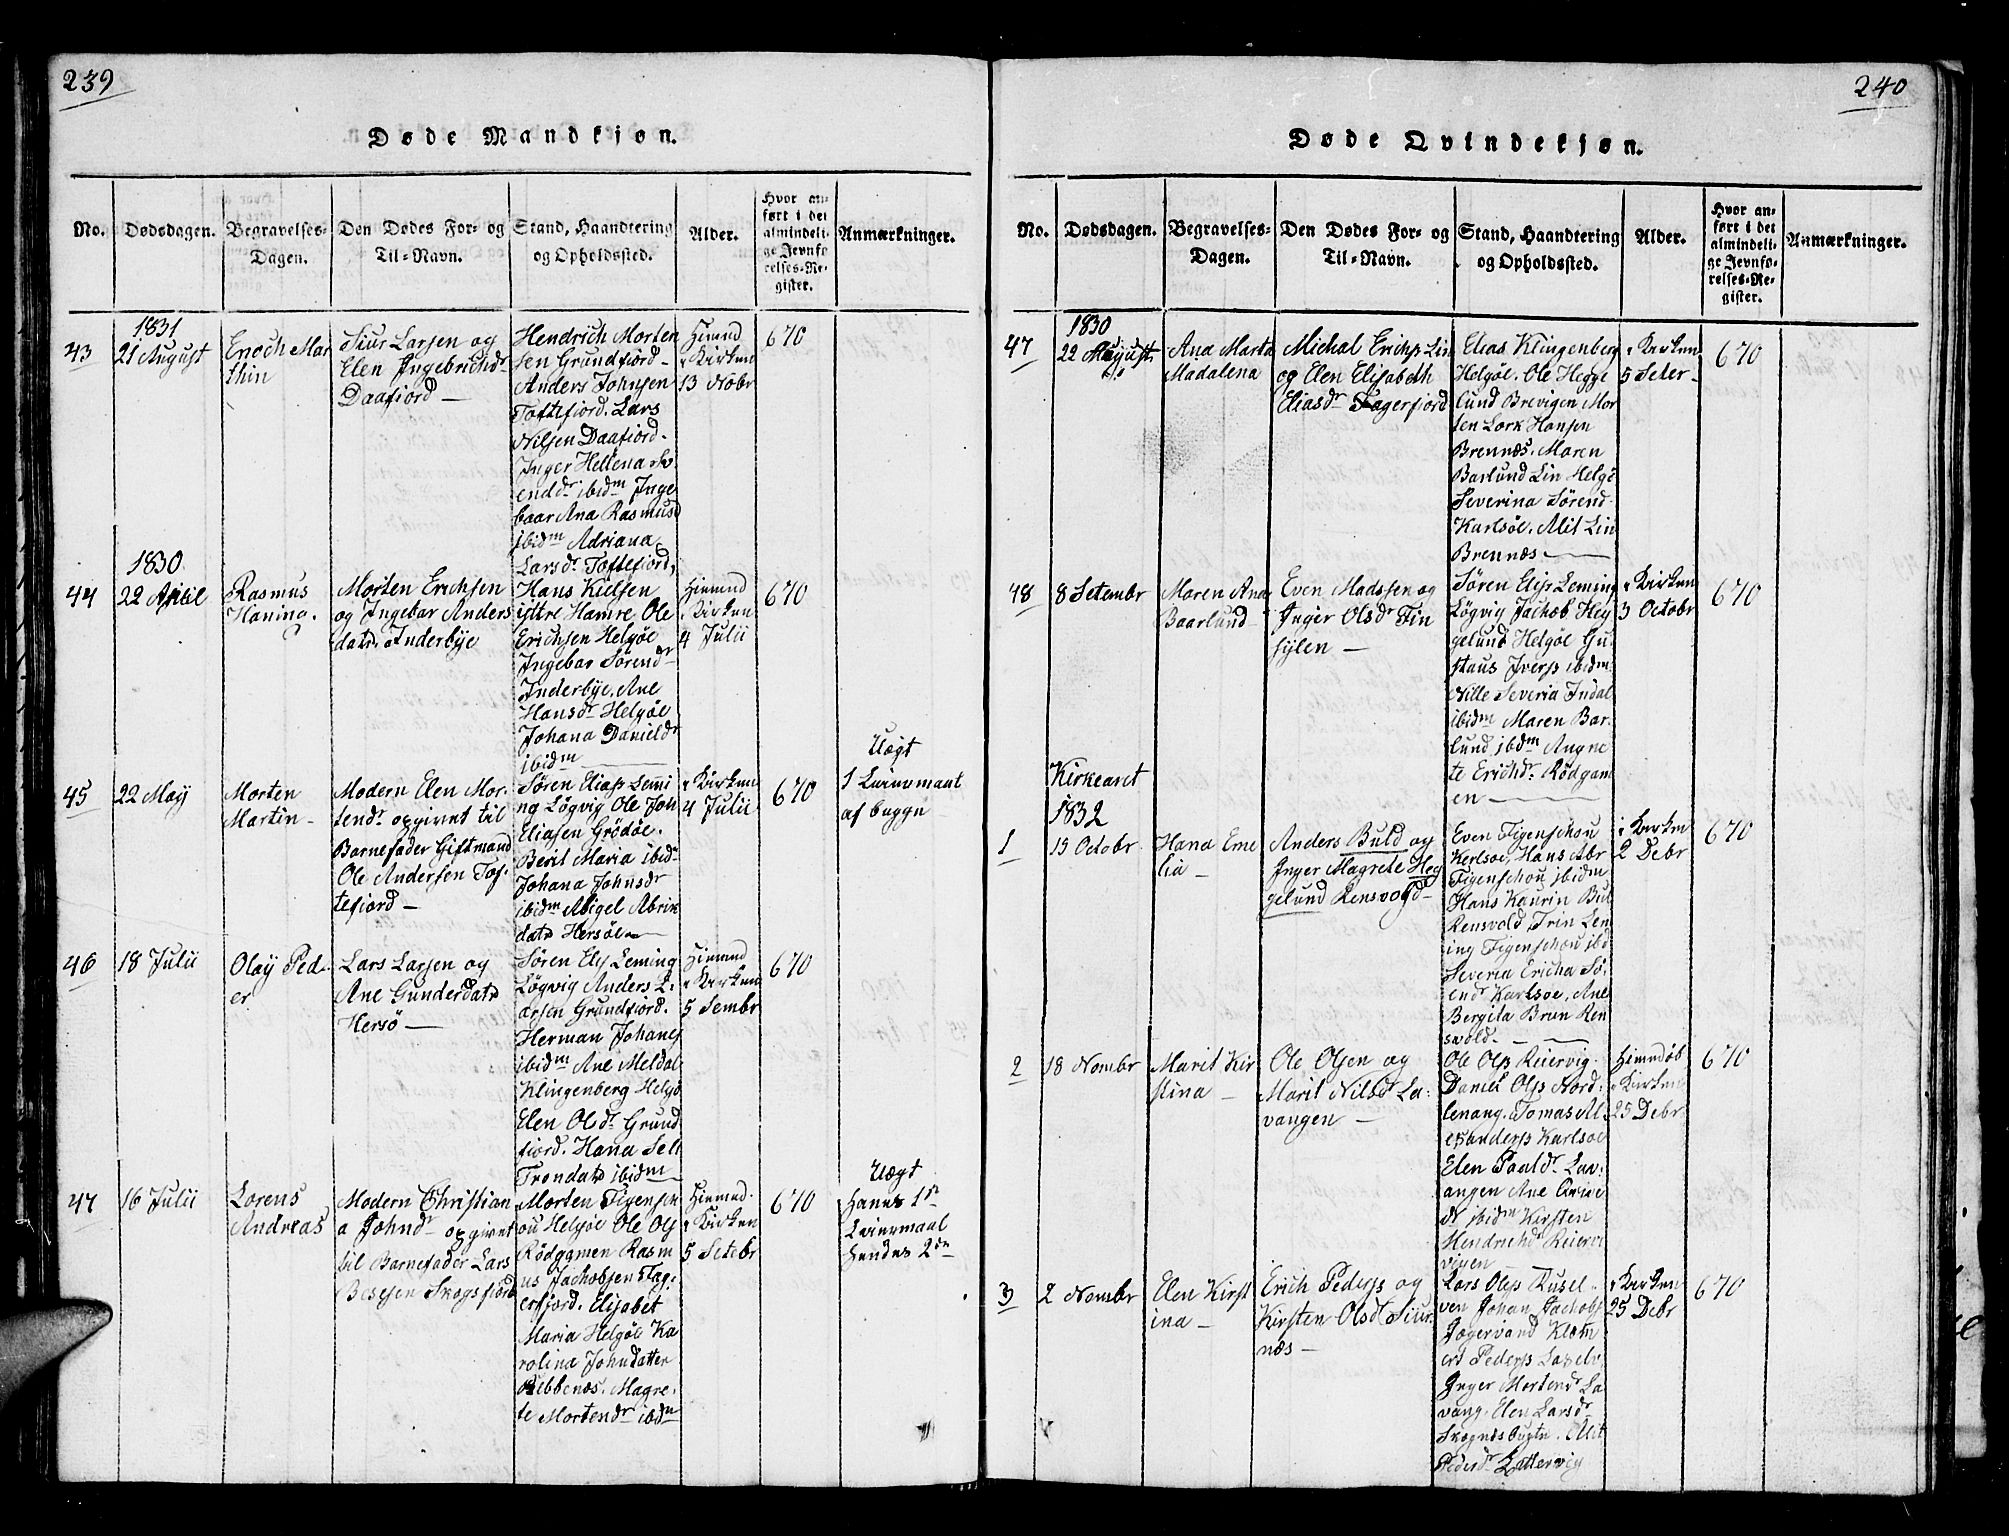 239
Døde Mandkjøn.
No.
Dødsdagen.
Begravelses-
Dagen.
Den Dødes For- og
Til-Navn.
Stand, Haandtering
og Opholdssted.
Alder.
Hvor an-
ført i det
almindeli-
ge Jevnfø-
relses-Re-
gister.
Anmærkninger.
43
1831
21 August
Enoch Mar
thin
Siur Larsen og
Elen Ingebrichdr
Daafiord
Hendrich Morten
sen Grundfiord
Anders Johnsen
Toftefiord. Lars
Nilsen Daafiord.
Inger Hellena Sv
enddr ibidm Inge
baar Ana Rasmusd
ibidm Adriana
Larsdr Toftefiord,
Hiemd
i Kirken
13 Nobr
670
44
1830
22 April
Rasmus
Hanina.
Morten Erichsen
og Ingebar Anders
datr Inderbye
Hans Kielsen
ijttre Hamre, Ole
Erichsen Helgöe
Ingebar Sörendr
Inderbye. Ane
Hansdr Helgöe
Johana Danieldr
ibidm
Hiemd
i Kirken
4 Julii
670
45
22 May
Morten
Martin
Modern Elen Mor-
tendr opgivet til
Barnefader Giftmand
Ole Andersen Tof-
tefiord
Sören Eliass Lemi
ng Lögvig Ole Joh
Eliasen Grödöe.
Berit Maria ibid
Johana Johnsdr
ibidm Abigel Abrik
datr Hersöe
i Kirken
4 Julii
670
Uægt
1 Leiermaal
af begge
46
18 Julii
Olaÿ Ped-
er
Lars Larsen og
Ane Gunderdatr
Hersö
Sören Els Leming
Lögvig Anders L-
arsen Grundfiord.
Herman Johanes
ibidm Ane Meldal
Klingenberg Helgö
Elen Olsdr Grund
fiord. Hana Seli
Trondatr ibidm
Hiemd
i Kirken
5 Sembr
670
47
16 Julii
Lorens
Andreas
Modern Christian
a Johndr opgivet
til Barnefader Lars
Besesen Skogsfiord
Morten Figensch
ou Helgöe Ole Ols
Rödgamen Rasm
us Jachobsen Flag-
erfjord. Elisabet
Maria Helgöe Ka
rolina Johndatter
Ribbenæs. Magre-
te Mortendr ibdm
Hiemd.
i Kirken
5 Setebr
670
Uægt
Hanes 1ste
Leiermaal
Hendes 2den
240
Døde Qvindekjøn.
No.
Dødsdagen.
Begravelses-
Dagen.
Den Dødes For- og
Til-Navn.
Stand, Haandtering
og Opholdssted.
Alder.
Hvor an-
ført i det
almindeli-
ge Jevnfø-
relses-Re-
gister.
Anmærkninger.
47
1830
22 August
Ana Marta
Madalena
Michal Erichs Lin
og Elen Elisabeth
Eliasdr Fagerfiord
Elias Klingenberg
Helgöe. Ole Hegge
lund Brevigen Mor
ten Lork Hansen
Brennæs. Maren
Barlund Lin Helgö
Severina Sörend
Karlsöe. Alit Lin
Brennæs
i Kirken
5 Seter
670
48
8 Setembr
Maren Ana
Baarlund
Even Madssen og
Inger Olsdr Fin
hÿlen
Sören Elis Leming
Lögvig Jachob Heg
gelund Helgöe Gu-
staus Ivers ibidm
Nille Severia Indal
ibidm Maren Bar-
lund ibdm Angne
te Erichdr Rödgam
en
i Kirken
3 Octobr
670
Kirkearet
1832
1
15 Octobr
Hana Eme
lia
Anders Buld og
Inger Magrete Heg
gelund Rensvold
Even Figenschou
Kerlsoe, Hans Abr
Figenschou ibidm
Hans Kaurin Bul
Rensvold, Trin Len
ing Figenschou ibd
Severia Ericha Sö-
endr Karlsoe, Ane
Bergita Brun Ren
svold.
i Kirken
2 Debr
670
2
18 Nombr
Marit Kir
stina
Ole Olsen og
Marit Nilsdr La-
vangen
Ole Ols Reiervig
Daniel Ols Nord-
lenang. Tomas Al
exanders Karlsoe
Elen Paaldr Lav-
angen Ane
dr ibidm Kirsten
Hendrichdr Reiervi
vigen
Hiemdöb
i Kirken
25 Debr
670
3
2 Nombr
Elen Kirst
ina
Erich Peders og
Kirsten Olsdr Siur
næs
Lars Oles Rusel-
ven Johan Jachobs
Jægervand Klem
ert Peders Laxelv
Inger Mortendr La
vang. Elen Larsdr
Skognesbugtn. Alit
Pedersdr Lattervig
i Kirken
25 Debr
670